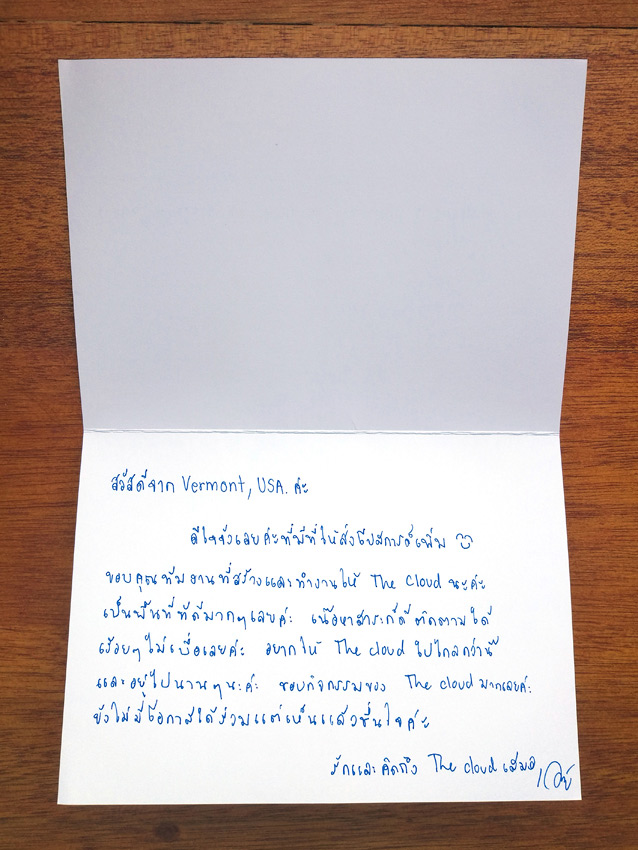 สวัสดีจาก Vermont, USA. ค่ะ
ดีใจจังเลยค่ะที่มีที่ให้ส่งโปสการ์ดเพิ่ม
ขอบคุณทีมงานที่สร้างและทำงานให้ The Cloud นะคะ
เป็นพื้นที่ที่ดีมากๆเลยค่ะ เนื้อหาสาระก็ดี ติดตามได้
เรื่อยๆไม่เบื่อเลยค่ะ อยากให้ The cloud ไปไกลกว่านี้
และอยู่ไปนานๆนะคะ ชอบกิจกรรมของ The cloud มากเลยค่ะ
ยังไม่มีโอกาสได้ร่วมแต่เห็นแล้วชื่นใจค่ะ
รักและคิดถึง The cloud เสมอ